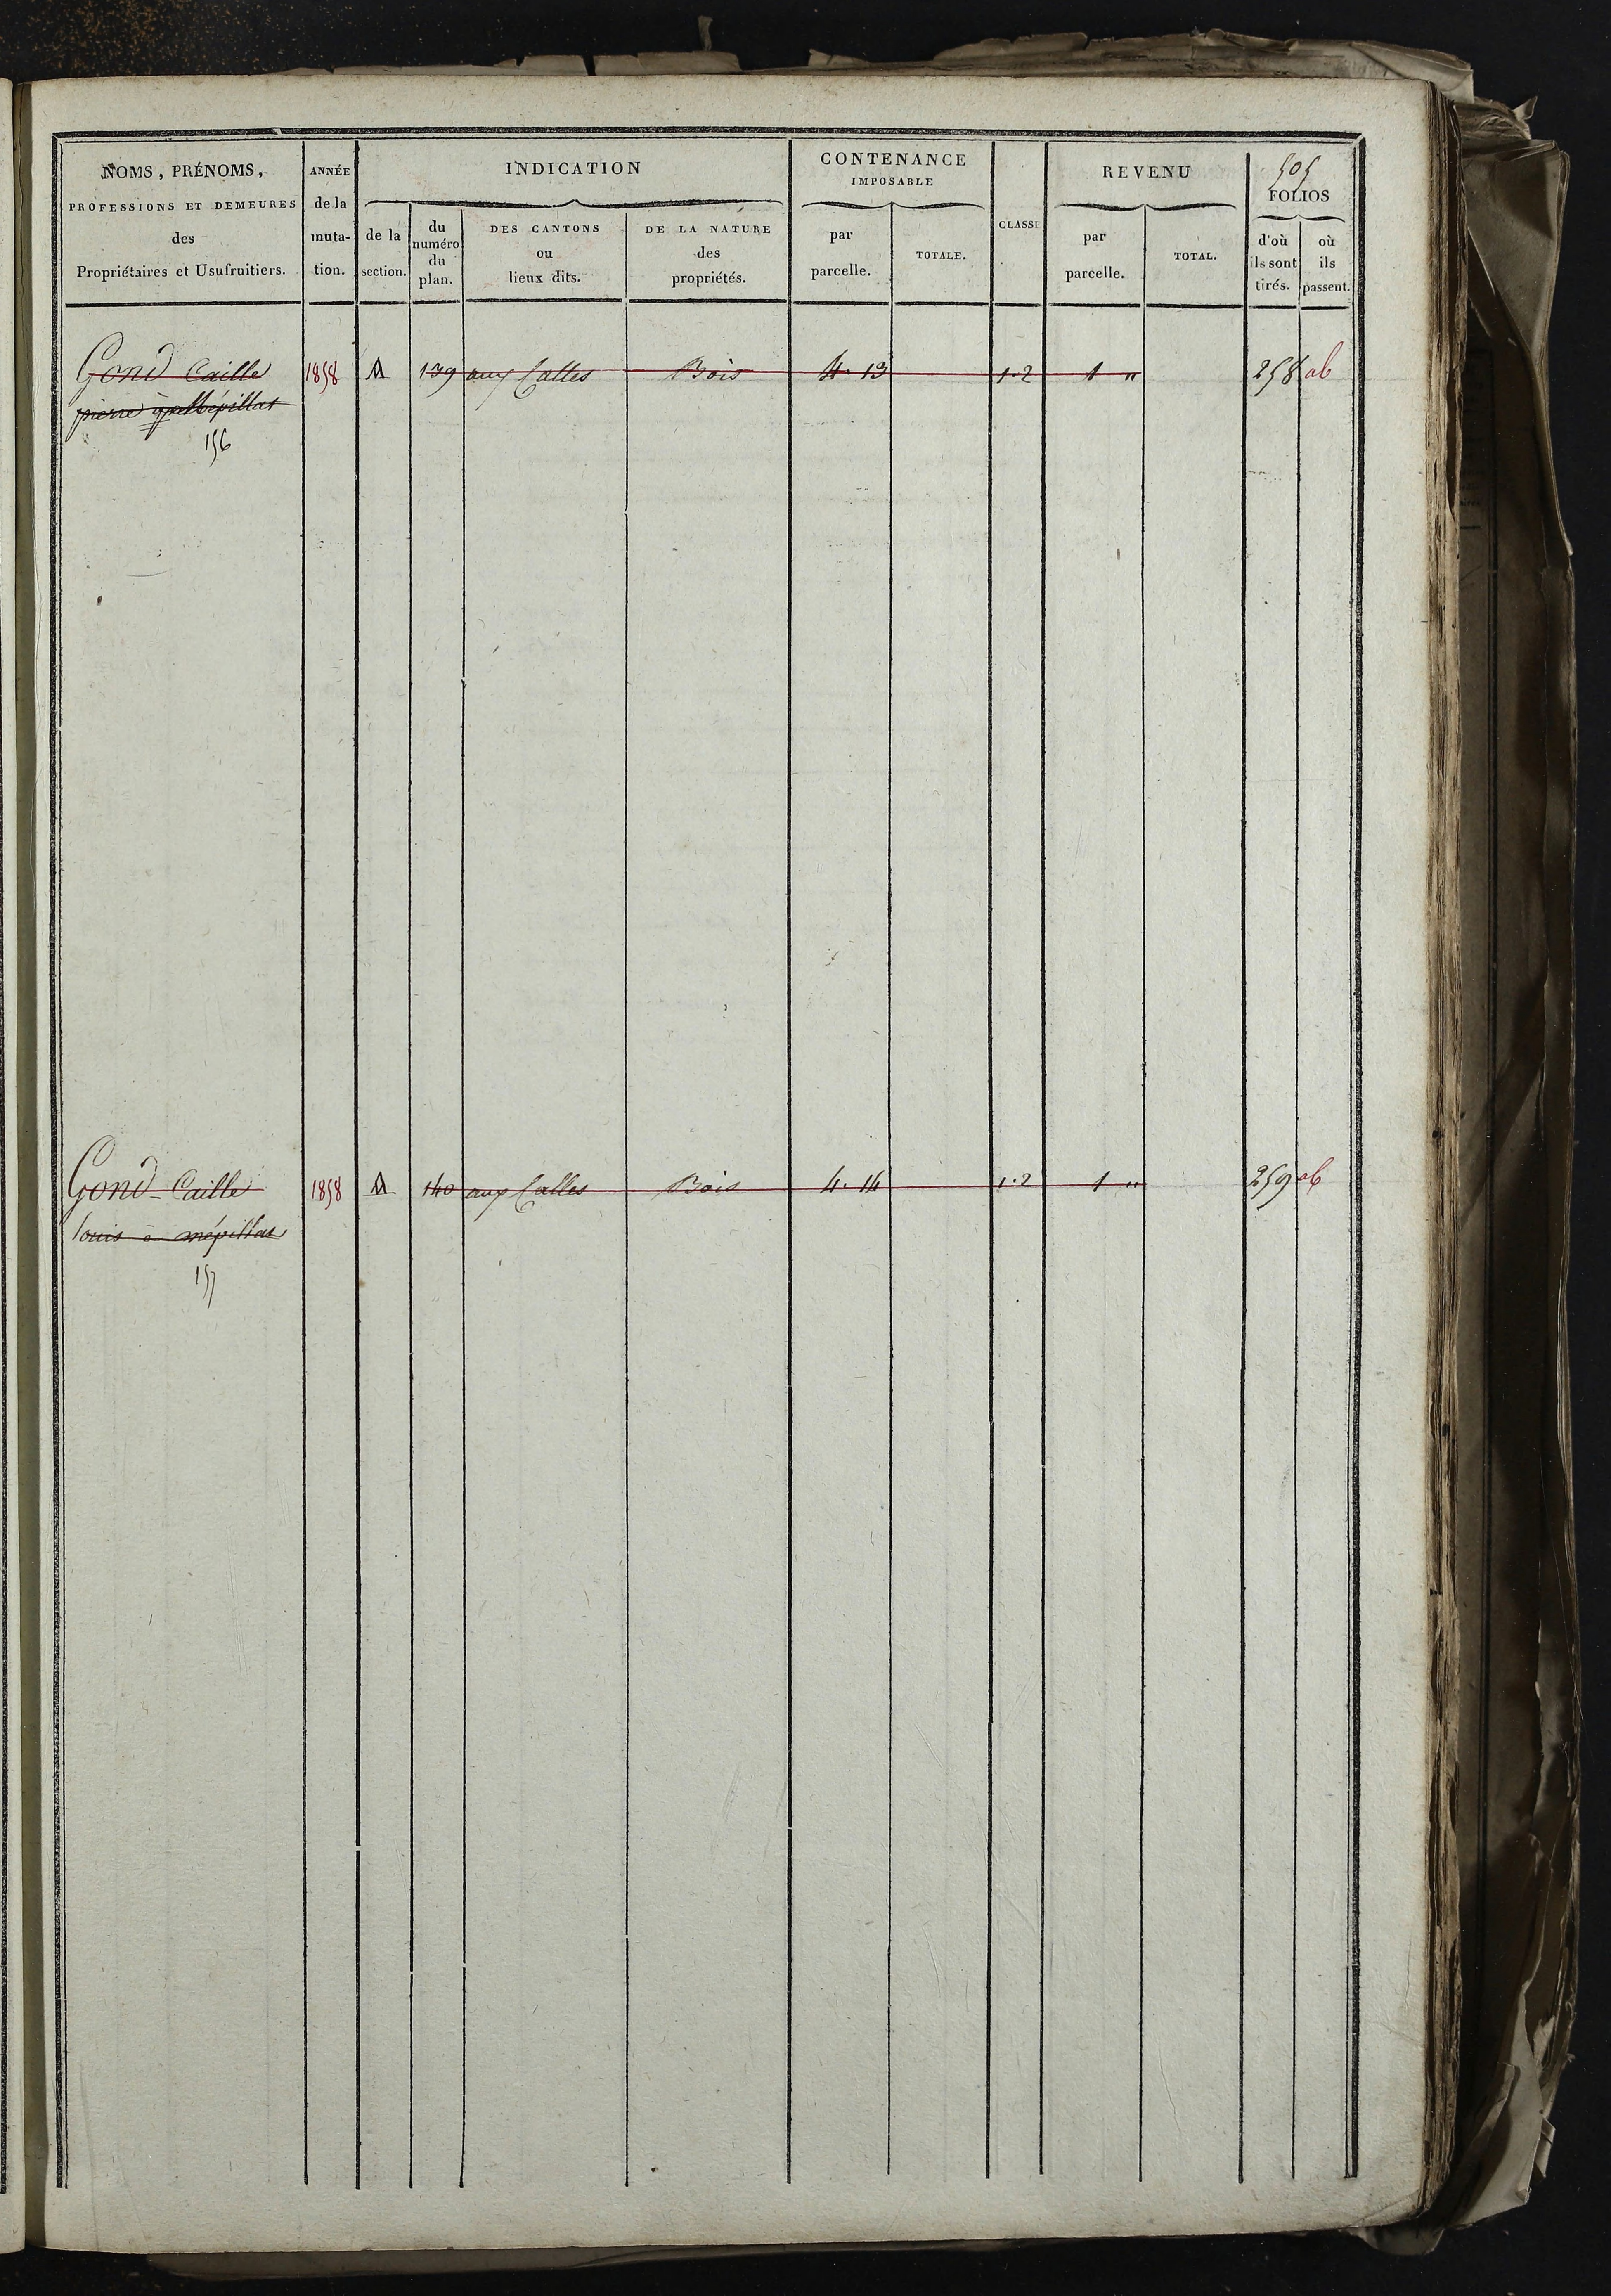 505
NOMS, PRÉNOMS,
PROFESSIONS ET DEMEURES
des
Propriétaires et Usufruitiers.
ANNÉE
de la
muta-
tion.
INDICATION
de la
section.
du
numéro
du
plan.
DES CANTONS
ou
lieux dits.
DE LA NATURE
des
propriétés.
CONTENANCE
IMPOSABLE
par
parcelle.
TOTALE.
CLASSE
REVENU
par
parcelle.
TOTAL.
FOLIOS
d'où
ils sont
tirés.
où
ils
passent.
Gond Caille 1858 A 139 aux Calles Bois 4. 13 1.2 1 " 258 ab
pierre
156
Gond-Caille 1858 A 140 aux Calles Bois 4. 14 1.2 1 " 259 ab
louis à mépillat
157